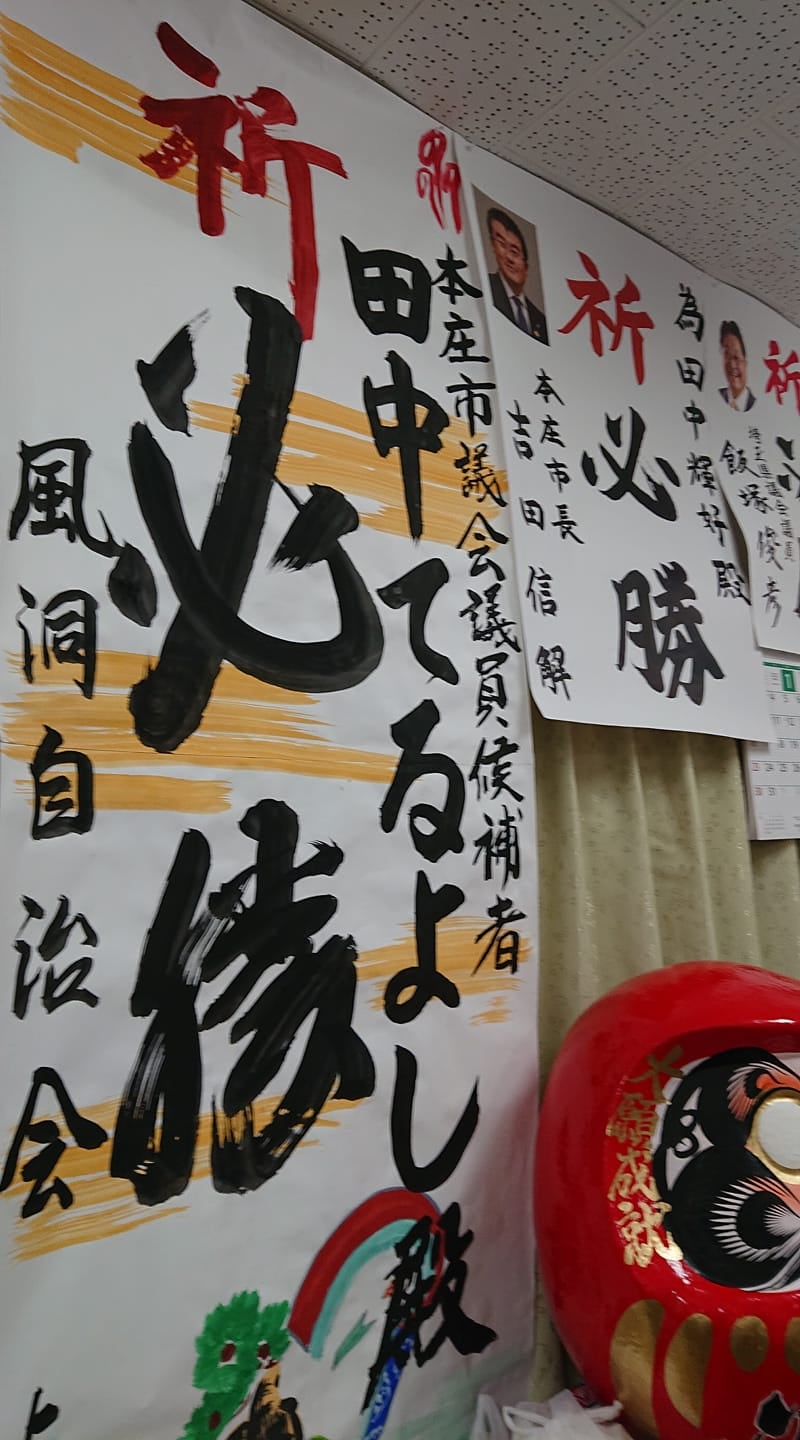 本庄市議会議員候補者
田中てるよし殿
祈
必勝
風洞自治会
為田中輝好殿
祈
必勝
本庄市長
吉田信解
祈
埼玉県議会議員
飯塚俊彦
大願成就
1